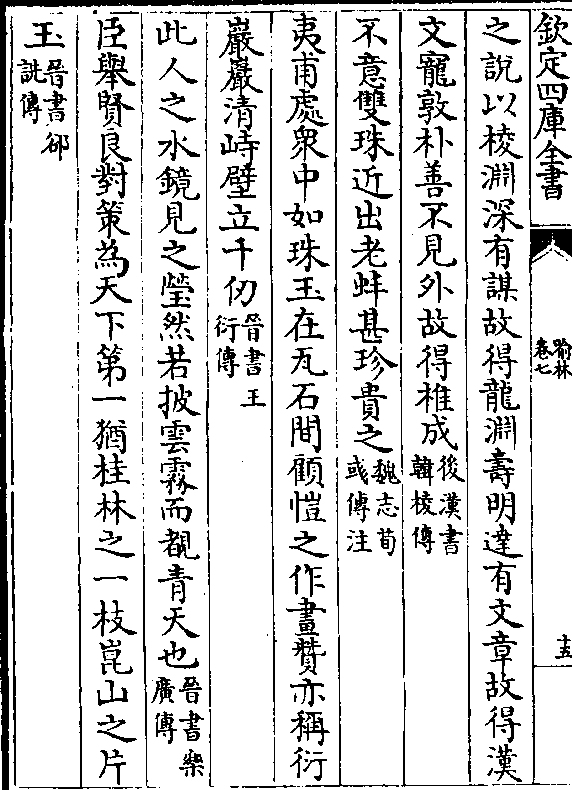 欽定四庫全書
喻林
卷七
十五
之說以棱淵深有謀故得龍淵壽明達有文章故得漢
文寵敦朴善不見外故得椎成後漢書韓棱傳
不意雙珠近出老蚌甚珍貴之魏志荀彧傳注
夷甫處衆中如珠玉在瓦石間顧愷之作畫贊亦稱衍
巖巖清峙壁立千仞晉書王衍傳
此人之水鏡見之瑩然若披雲霧而覩青天也晉書樂廣傳
臣舉賢良對策為天下第一猶桂林之一枝崑山之片
玉晉書郤詵傳